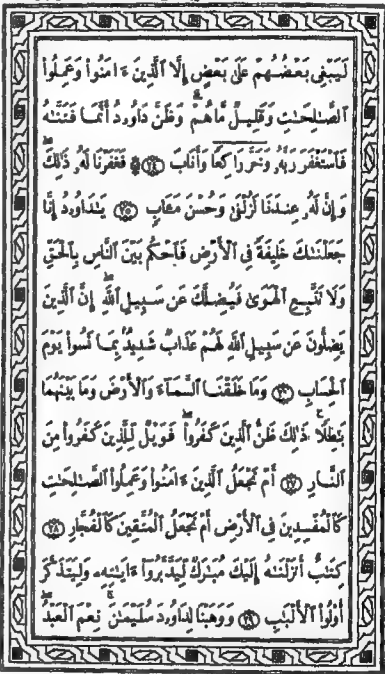 لَيَبْغِى بَعْضُهُمْ عَلَىٰ بَعْضٍ إِلَّا ٱلَّذِينَ ءَامَنُوا۟ وَعَمِلُوا۟
ٱلصَّـٰلِحَـٰتِ وَقَلِيلٌ مَّا هُمْ ۗ وَظَنَّ دَاوُۥدُ أَنَّمَا فَتَنَّـٰهُ
فَٱسْتَغْفَرَ رَبَّهُۥ وَخَرَّ رَاكِعًا وَأَنَابَ ۩ ﴿٢٤﴾ فَغَفَرْنَا لَهُۥ ذَٰلِكَ ۖ
وَإِنَّ لَهُۥ عِندَنَا لَزُلْفَىٰ وَحُسْنَ مَـَٔابٍ ﴿٢٥﴾ يَـٰدَاوُۥدُ إِنَّا
جَعَلْنَـٰكَ خَلِيفَةً فِى ٱلْأَرْضِ فَٱحْكُم بَيْنَ ٱلنَّاسِ بِٱلْحَقِّ
وَلَا تَتَّبِعِ ٱلْهَوَىٰ فَيُضِلَّكَ عَن سَبِيلِ ٱللَّهِ ۚ إِنَّ ٱلَّذِينَ
يَضِلُّونَ عَن سَبِيلِ ٱللَّهِ لَهُمْ عَذَابٌ شَدِيدٌۢ بِمَا نَسُوا۟ يَوْمَ
ٱلْحِسَابِ ﴿٢٦﴾ وَمَا خَلَقْنَا ٱلسَّمَآءَ وَٱلْأَرْضَ وَمَا بَيْنَهُمَا
بَـٰطِلًا ۚ ذَٰلِكَ ظَنُّ ٱلَّذِينَ كَفَرُوا۟ ۚ فَوَيْلٌ لِّلَّذِينَ كَفَرُوا۟ مِنَ
ٱلنَّارِ ﴿٢٧﴾ أَمْ نَجْعَلُ ٱلَّذِينَ ءَامَنُوا۟ وَعَمِلُوا۟ ٱلصَّـٰلِحَـٰتِ
كَٱلْمُفْسِدِينَ فِى ٱلْأَرْضِ أَمْ نَجْعَلُ ٱلْمُتَّقِينَ كَٱلْفُجَّارِ ﴿٢٨﴾
كِتَـٰبٌ أَنزَلْنَـٰهُ إِلَيْكَ مُبَـٰرَكٌ لِّيَدَّبَّرُوٓا۟ ءَايَـٰتِهِۦ وَلِيَتَذَكَّرَ
أُو۟لُوا۟ ٱلْأَلْبَـٰبِ ﴿٢٩﴾ وَوَهَبْنَا لِدَاوُۥدَ سُلَيْمَـٰنَ ۚ نِعْمَ ٱلْعَبْدُ ۖ